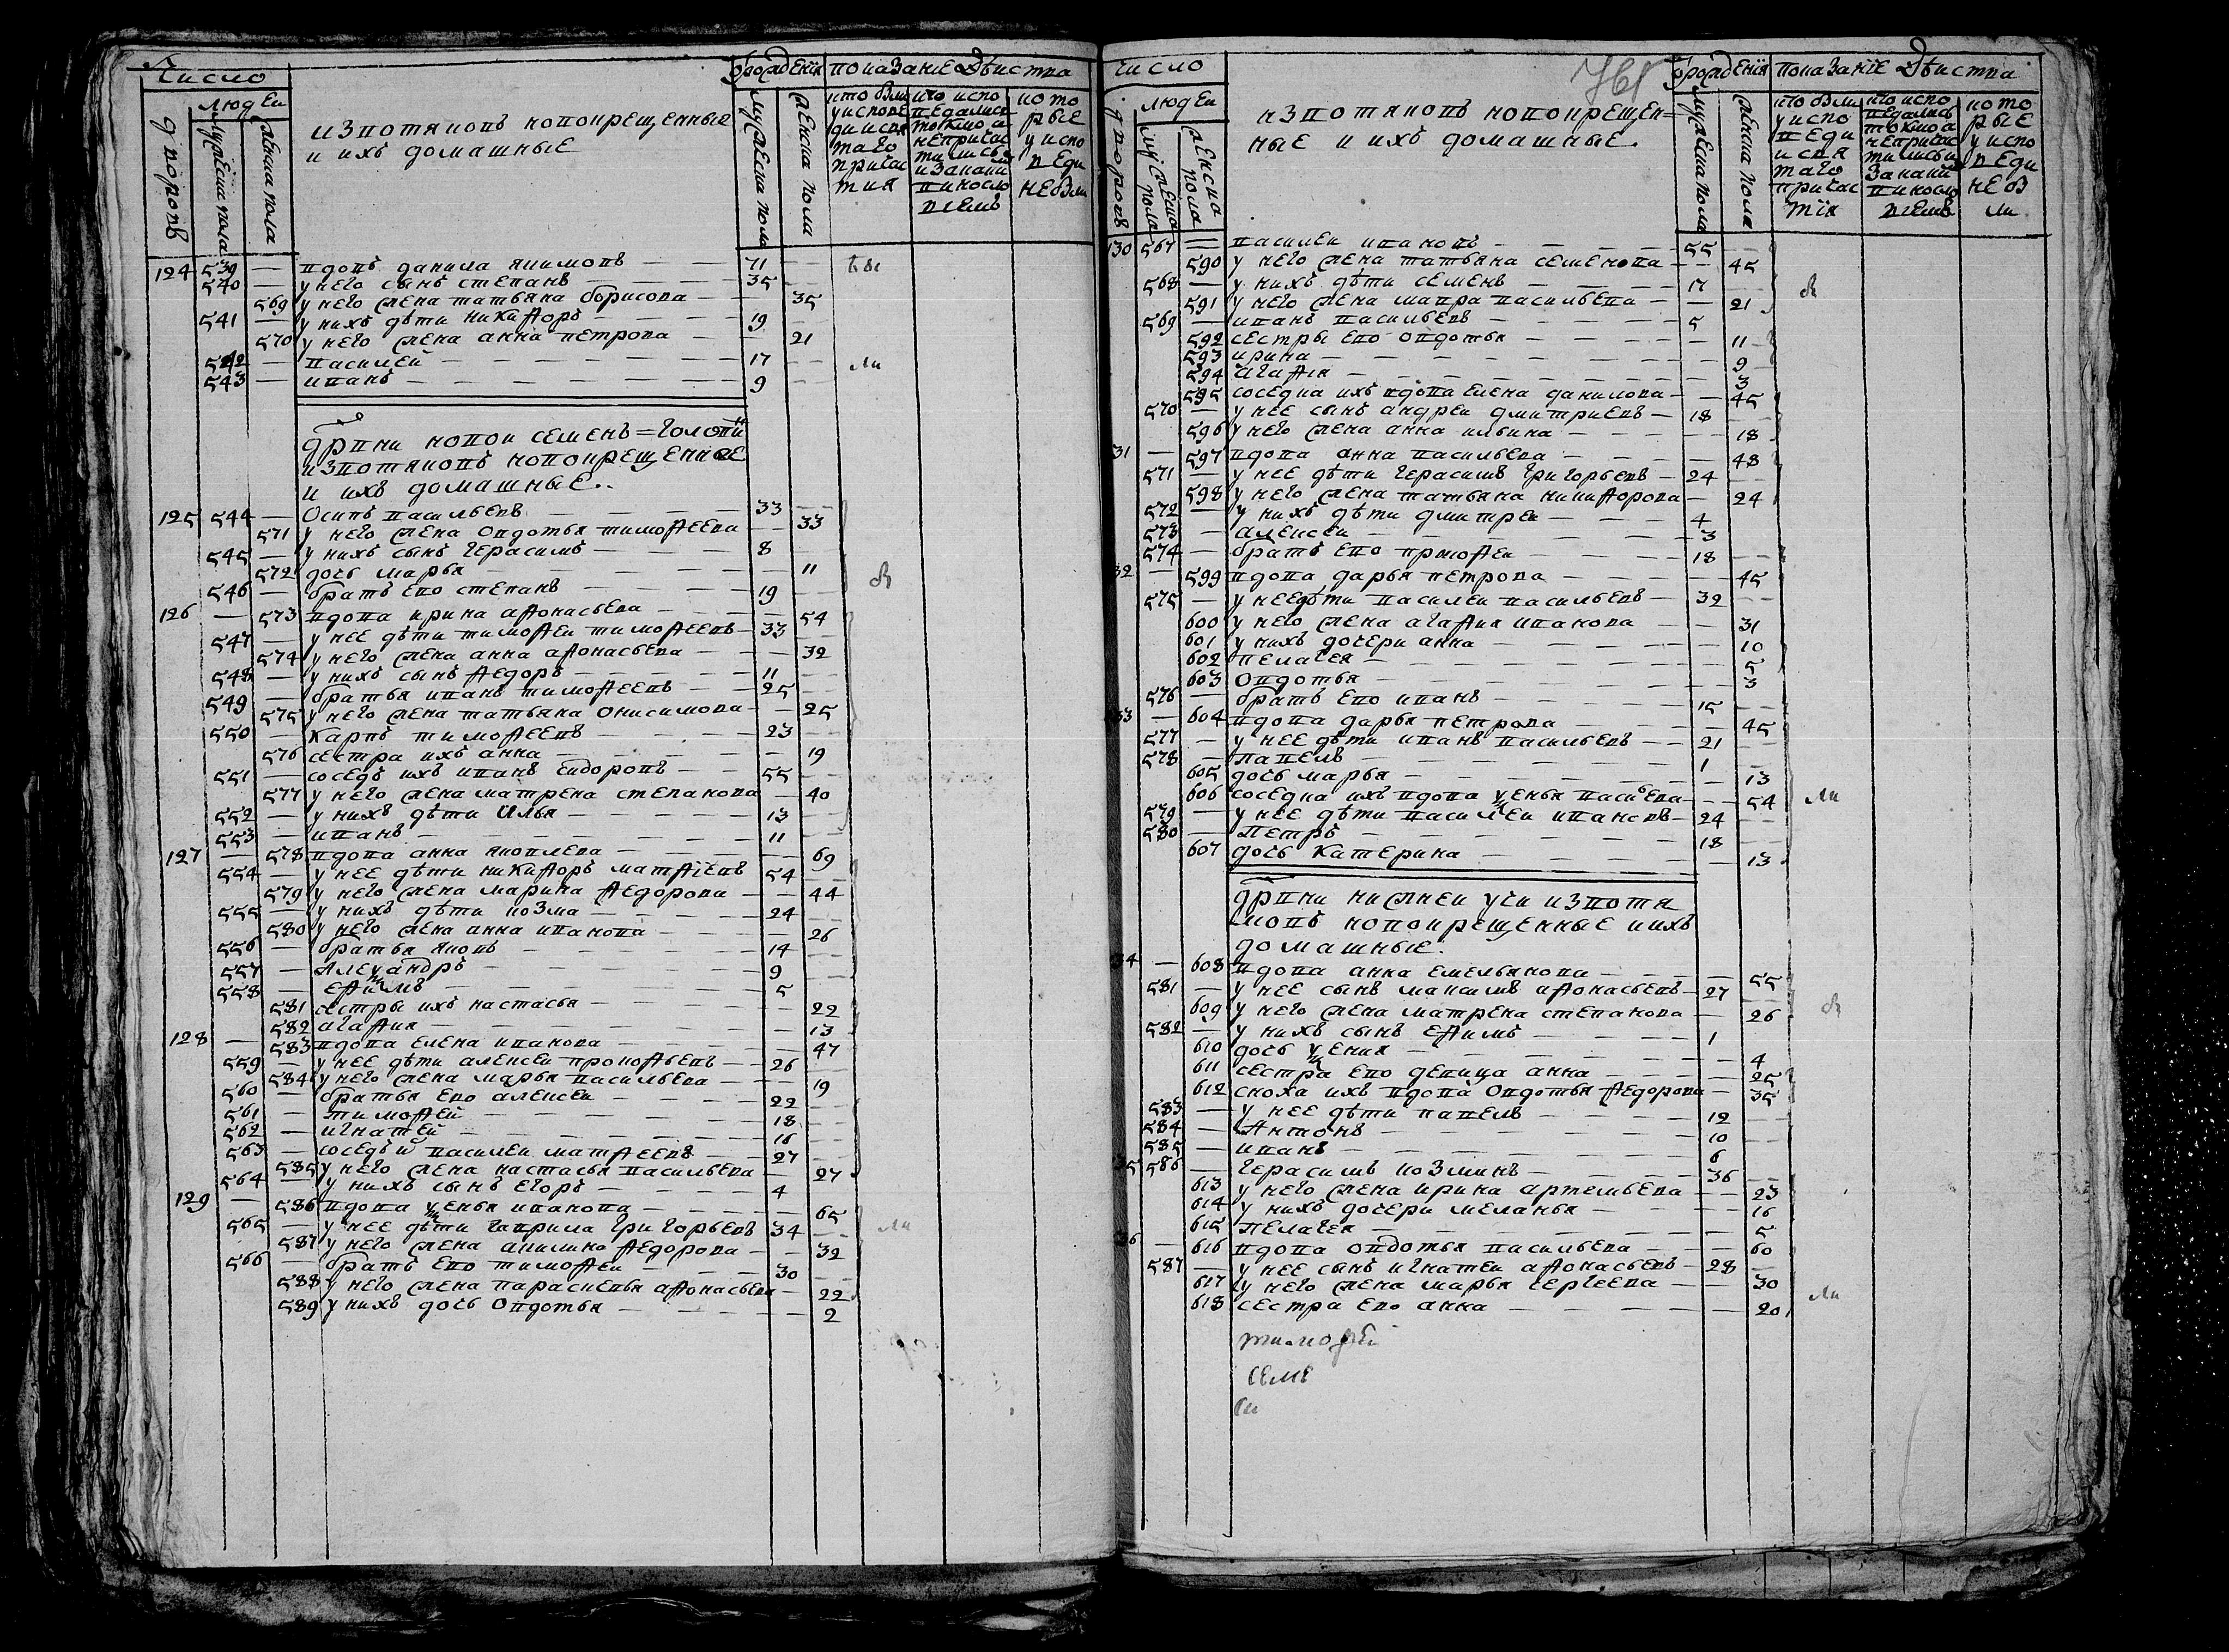 Число
людеи
дворовъ
мужеска пола
женска пола
изпотяковъ новокрещенные
и ихъ домашные
ѿрождения
мужеска пола
женска пола
показание действа
кто были
у исповѣ
ди и свя
таго
причас
тия
кто испо
ведался
токмо а
непричас
тились
и закаки
ми косло
виемъ
кото
рые
у испо
веди
небыли
124 539 — вдовъ данила якимовъ — — 71 — —
540 — у него сынъ степанъ — — — 35 — —
569 у него жена татьяна борисова — — 35
541 — у нихъ дѣти никифоръ — — — 19
570 у него жена анна петрова — — 21
542 — василей — — — 17 — —
543 — иванъ — — — 9 — —
были
дрвни новои семенъ=головы
изпотяковъ новокрещенные
и ихъ домашные..
125 544 — Осипъ васильевъ — — — 33 — —
571 у него жена овдотья тимофеева — — 33
545 — у нихъ сынъ герасимъ — — — 8
572 дочь марья — — — 11
546 — братъ ево степанъ — — — 19
126 — 573 вдова ирина афонасьева — — — 54
547 — у нее дѣти тимофеи тимофеевъ — 33 — —
574 у него жена анна афонасьева — — — 32
548 — у нихъ сынъ федоръ — — — 11 — —
549 — братья иванъ тимофеевъ — — 25 — —
575 у него жена татьяна онисимова — — 25
550 — карпъ тимофеевъ — — — 23 — —
576 сестра ихъ анна — — — 19
551 — соседъ ихъ иванъ сидоровъ — — 55 — —
577 у него жена матрена степанова — 40
552 — у нихъ дѣти Илья — — — 13 — —
553 — иванъ — — — 11 — —
127 — 578 вдова анна яковлева — — — 69
554 — у нее дѣти никифоръ матфiевъ 54 — —
579 у него жена марина федорова — — 44
555 — у нихъ дѣти козма — — — 24 — —
580 у него жена анна иванова — — — 26
556 — братья яковъ — — — 14 — —
557 — Александръ — — — 9 — —
558 — ефимъ — — — 5 — —
581 сестры ихъ настасья — — — 22
582 агафия — — — 13
128 — 583 вдова елена иванова — — — 47
559 — у нее дѣти алексеи прокофьевъ — — 26 — —
584 у него жена марья васильева — — — 19
560 — братья ево алексеи — — — 22 — —
561 — тимофей — — — 18 — —
562 — игнатей — — — 16 — —
563 — соседъ и василеи матфеевъ — — 27 — —
585 у него жена настасья васильева — 27
564 — у нихъ сынъ егоръ — — — 4
129 — 586 вдова ѯенья иванова — — — 65
565 — у нее дѣти гаврила григорьевъ 34 — —
587 у него жена акилина федорова — — 32
566 — братъ ево тимофеи — — — 30 — —
588 у него жена парасковья афонасьева — 22
589 у нихъ дочь овдотья — — — 2
761
Число
людеи
дворовъ
мужеска пола
женска пола
изпотяковъ новокрещен=
ные и ихъ домашные.
ѿрождения
мужеска пола
женска пола
показанiе действа
кто были
у испо
веди
и свя
таго
причас
тiя
кто испо
ведались
токмо а
непричас
тились и
закаки
ми косло
виемъ
кото
рые
у испо
веди
не бы
ли
130 567 — василеи ивановъ — — — 55 — —
590 у него жена татьяна семенова — — 45
568 — у нихъ дѣти семенъ — — — 17 — —
591 у него жена мавра васильева — — 21
569 — иванъ васильевъ — — — 5
592 сестры ево овдотья — — — 11
593 ирина — — — 9
594 агафiя — — — 3
595 соседка ихъ вдова елена данилова — — 45
570 — у нее сынъ андреи дмитриевъ — 18 — —
596 у него жена анна ильина — — — 18
31 — 597 вдова анна васильева — — — 48
571 — у нее дѣти герасимъ григорьевъ — 24 — —
598 у него жена татьяна никифорова — 24
572 — у нихъ дѣти дмитреи — — — 4
573 — алексеи — — — 3
574 — братъ ево прокофеи — — — 18 — —
32 — 599 вдова дарья петрова — — — 45
575 — у нее дѣти василеи васильевъ — 32 — —
600 у него жена агафия иванова — — 31
601 у нихъ дочери анна — — — 10
602 пелагея — — — 5
603 Овдотья — — — 3
576 — братъ ево иванъ — — — 15 — —
33 — 604 вдова дарья петрова — — — 45
577 — у нее дѣти иванъ васильевъ — — 21 — —
578 — павелъ — — — 1 —
605 дочь марья — — — 13
606 соседка ихъ вдова ѯенья васильева — — 54
579 — у нее дѣти василеи ивановъ — 24 — —
580 — Петръ — — — 18 — —
607 дочь Катерина — — — 13
дрвни нижнеи учи изпотя
ковъ новокрещенные и ихъ
домашные.
34 — 608 вдова анна емельянова — — — 55
581 — у нее сынъ максимъ афонасьевъ — 27 — —
609 у него жена матрена степанова — 26
582 — у нихъ сынъ ефимъ — — — 1
610 дочь ѯения — — — 4
611 сестра ево девица анна — — — 25
612 сноха ихъ вдова Овдотья федорова — 35
583 — у нее дѣти павелъ — — — 12 — —
584 — Антонъ — — — 10 — —
585 — иванъ — — — 6
35 586 — герасимъ козминъ — — — 36 — —
613 у него жена ирина артемьева — — 23
614 у нихъ дочери меланья — — — 16
615 Пелагея — — — 5
36 — 616 вдова овдотья васильева — — — 60
587 — у нее сынъ игнатеи афонасьевъ — 28 —
617 у него жена марья сергеева — — 30
618 сестра ево анна — — — 20
тимофеи
семе
си